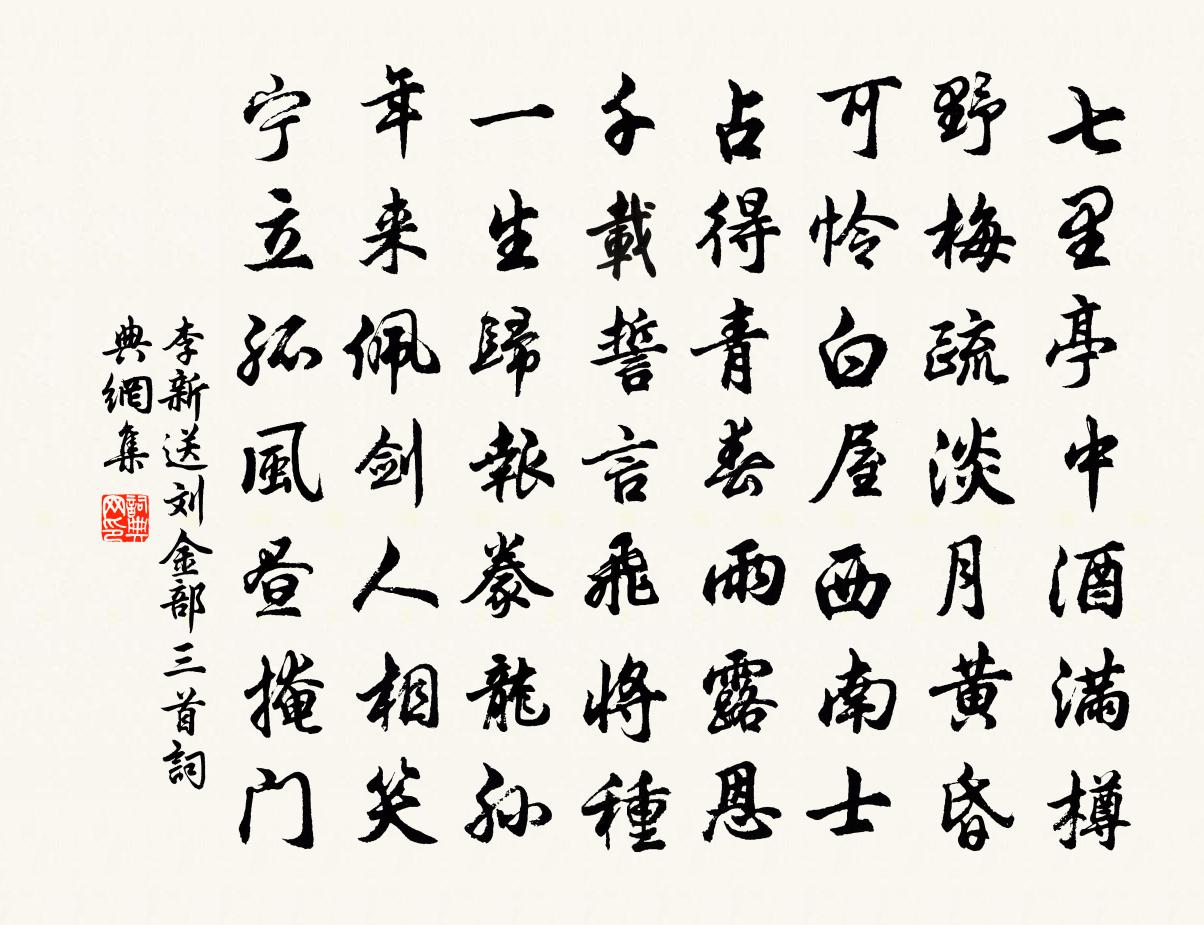 七里亭中酒满樽
野梅疏淡月黄昏
可怜白屋西南士
占得青春雨露恩
千載誓言飛將種
一生歸報豢龍孙
年来佩剑人相笑
宁立孤風昼掩门
李新送刘金部三首詞
典網集
詞典
网印